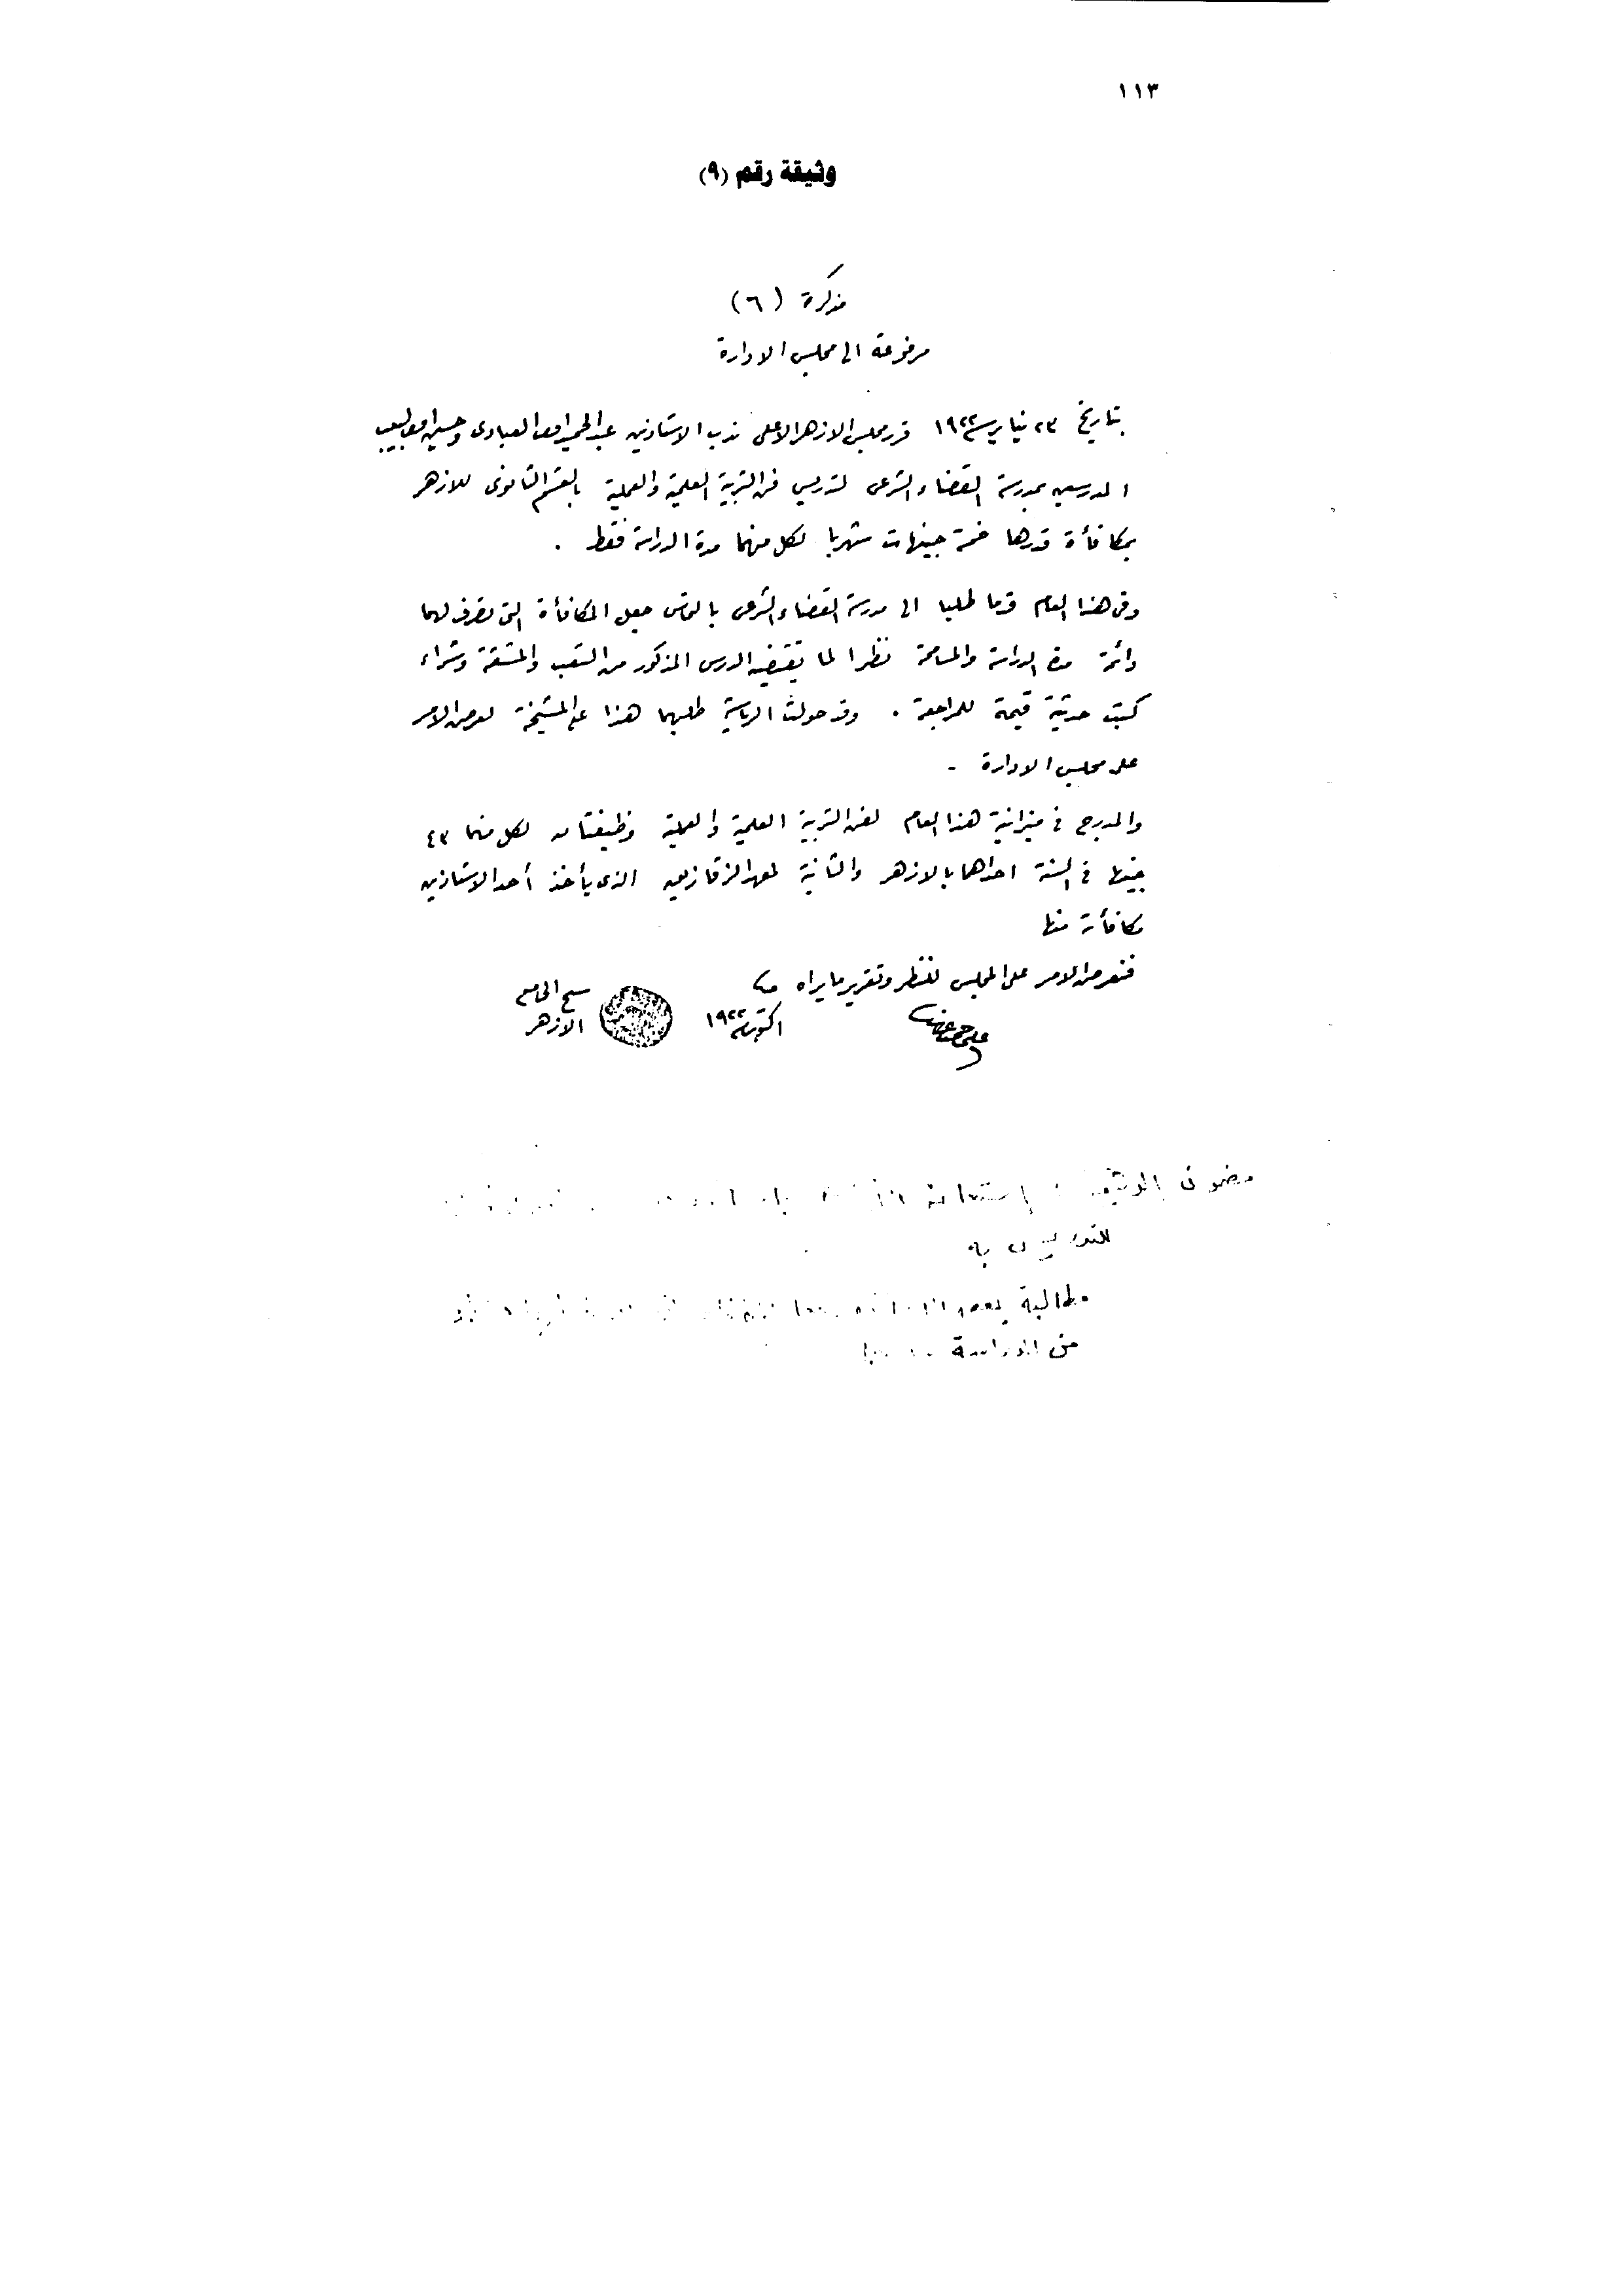 ١١٣
وثيقة رقم (٩)
مذكرة (٦)
مرفوعة الى مجلس الادارة
بتاريخ ٢٣ يناير سنة ١٩٢٢ قرر مجلس الازهر الاعلى ندب الاستاذين عبد الحميد افندى العبادى وحسين افندى لبيب
المدرسين بمدرسة القضاء الشرعى لتدريس فن التربية العلمية والعملية بالقسم الثانوى للازهر
بمكافأة قدرها خمسة جنيهات شهريا لكل منهما مدة الدراسة فقط .
وفى هذا العام قدما طلبا الى مدرسة القضاء الشرعى بالتماس جعل المكافأة التى تصرف لهما
دائمة مدة الدراسة والمسامحة نظرا لما يقتضيه الدرس المذكور من التعب والمشقة وشراء
كتب حديثة قيمة للمراجعة . وقد حولت الرياسة طلبهما هذا على المشيخة لعرض الامر
على مجلس الادارة -
والمدرج فى ميزانية هذا العام لفن التربية العلمية والعملية وظيفتان لكل منهما ٤٣
جنيها فى السنة احداهما بالازهر والثانية لمعهد الزقازيق الذى يأخذ أحد الاستاذين
مكافأة منها
فنعرض الامر على المجلس للنظر وتقرير ما يراه
اكتوبر سنة ١٩٢٢
شيخ الجامع
الازهر
مضمون الوثيقة : إستعانة
للتدريس به
مطالبة بعض
من الدراسة